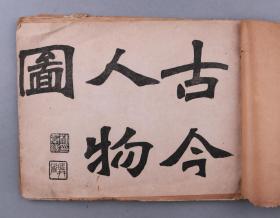 古今
人物
圖